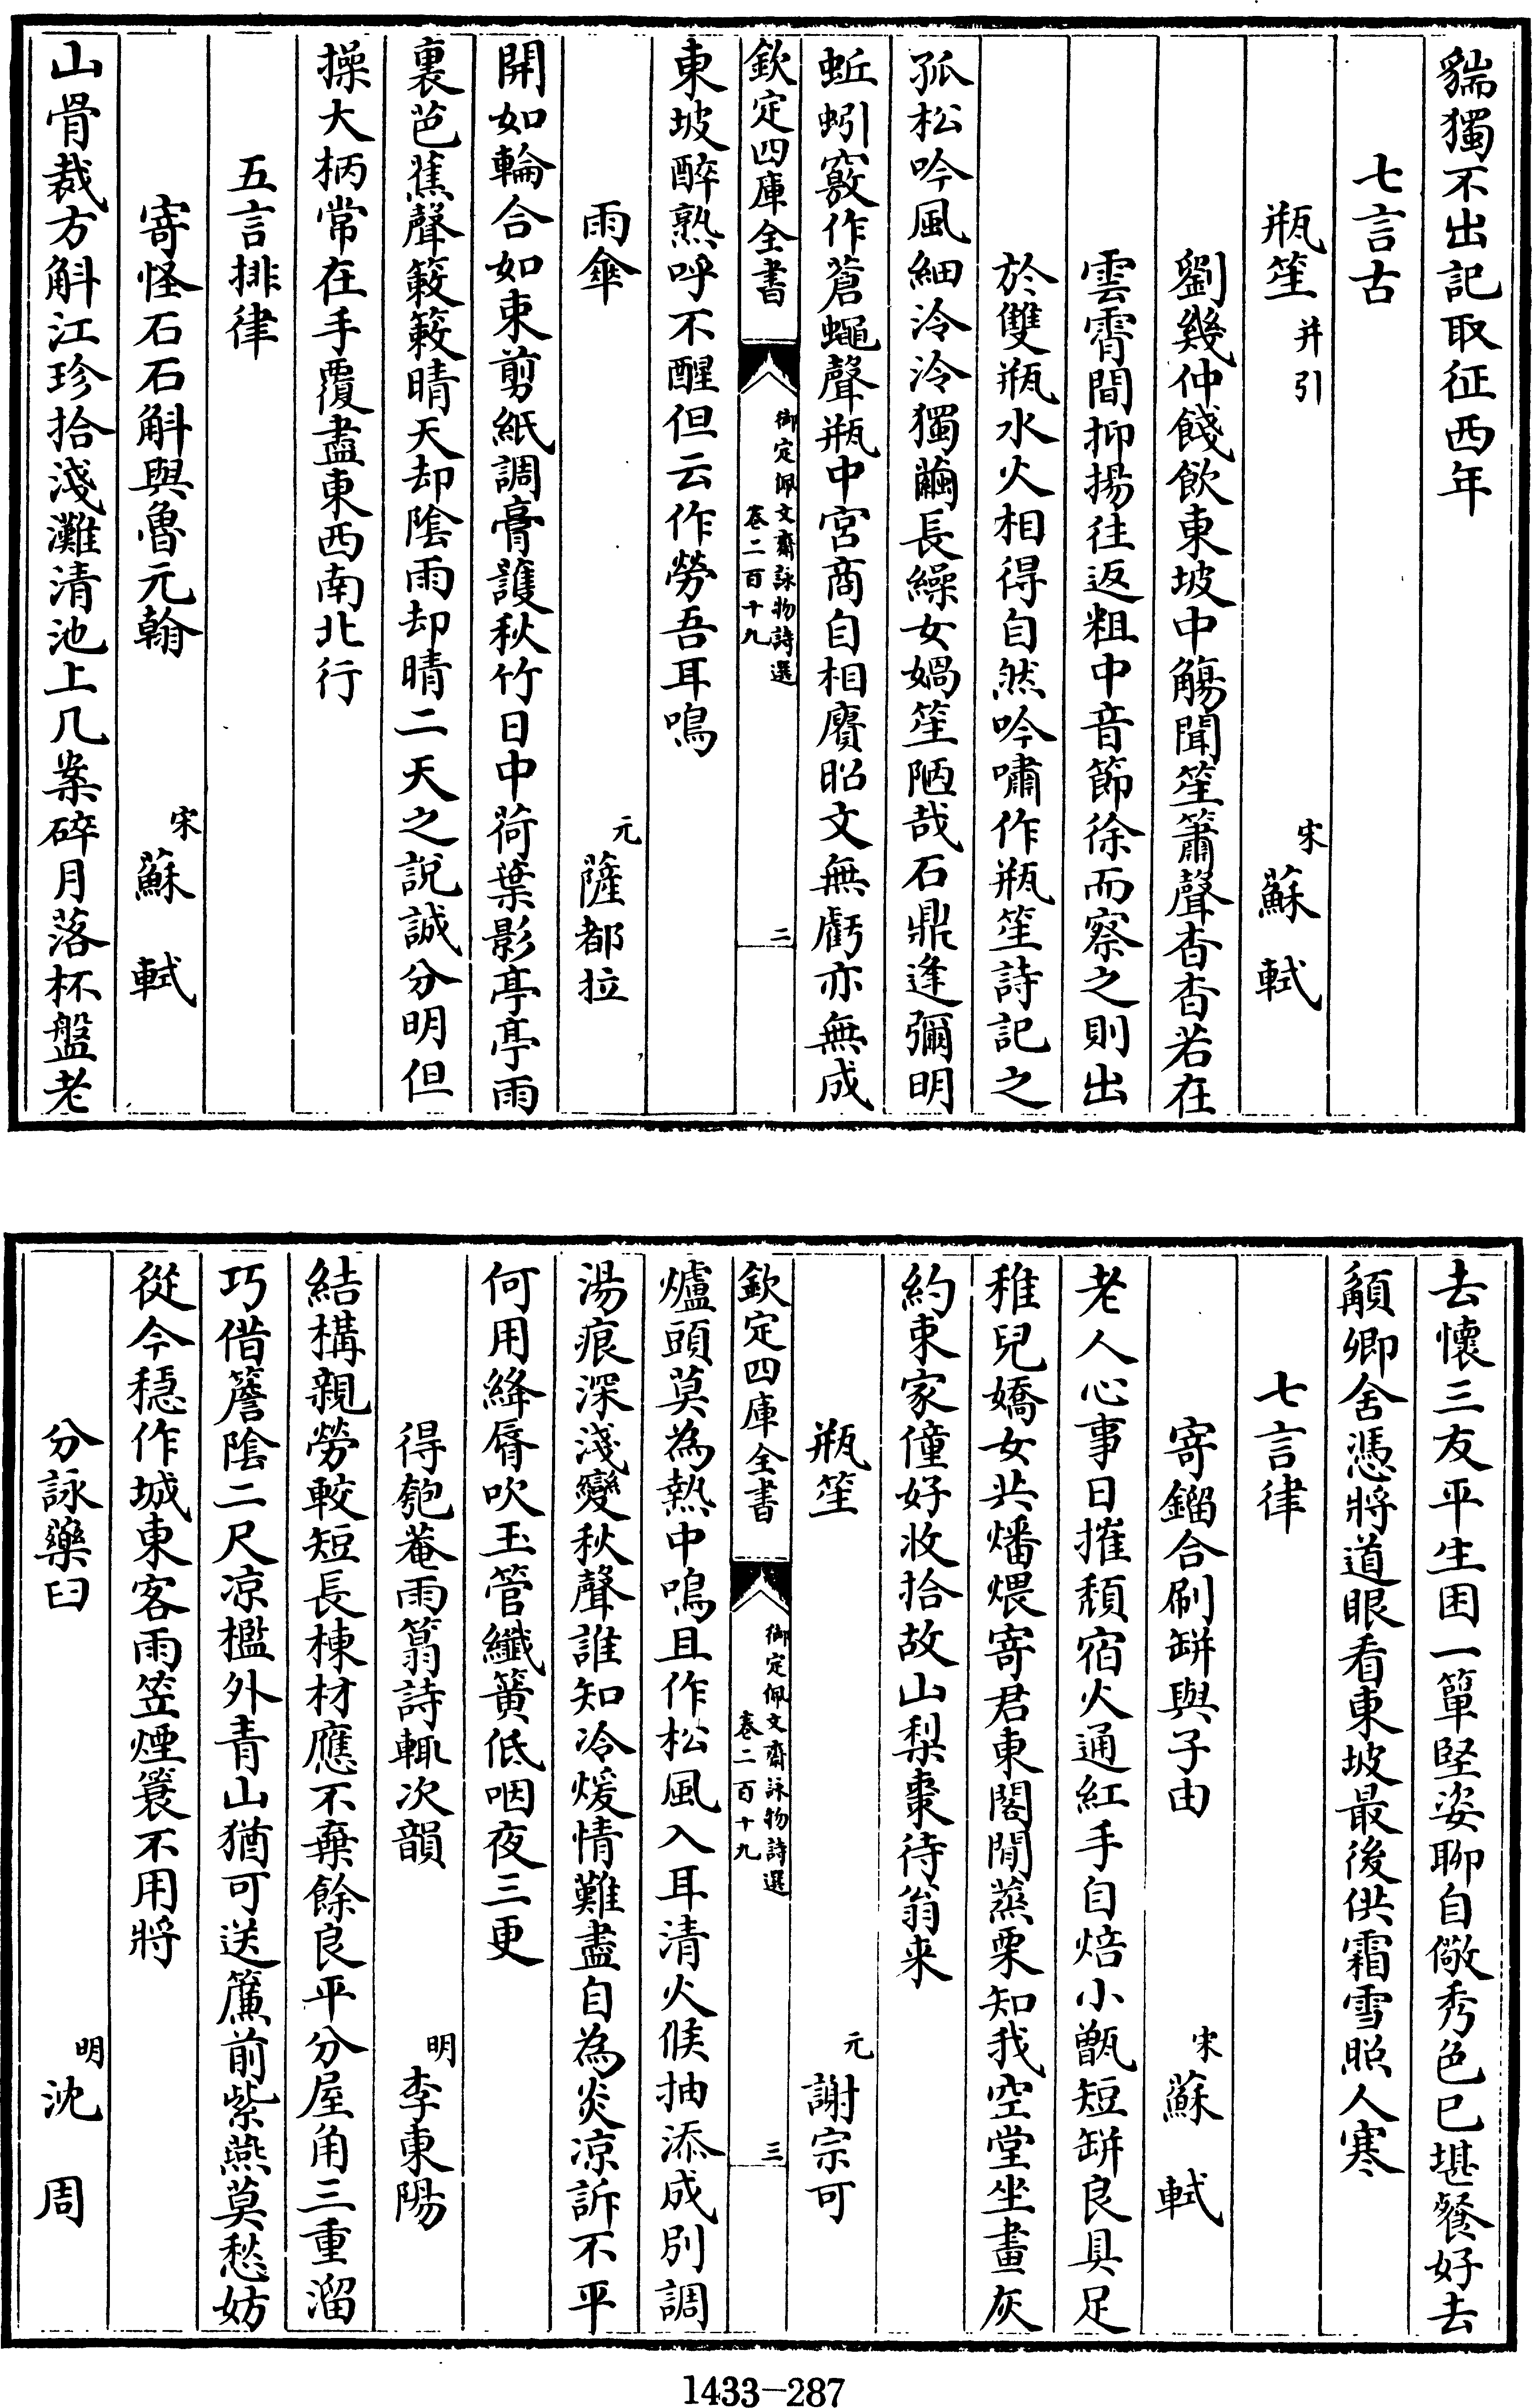 貒獨不出記取征西年
七言古
瓶笙并引 宋蘇軾
劉幾仲餞飲東坡中觴聞笙簫聲杳杳若在
雲霄間抑揚往返粗中音節徐而察之則出
於雙瓶水火相得自然吟嘯作瓶笙詩記之
孤松吟風細泠泠獨繭長繰女媧笙陋哉石鼎逢彌明
蚯蚓竅作蒼蠅聲瓶中宮商自相賡昭文無虧亦無成
欽定四庫全書 御定佩文齋詠物詩選 卷二百十九 二
東坡醉熟呼不醒但云作勞吾耳鳴
雨傘 元薩都拉
開如輪合如束剪紙調膏護秋竹日中荷葉影亭亭雨
裏芭蕉聲簌簌晴天却陰雨却晴二天之說誠分明但
操大柄常在手覆盡東西南北行
五言排律
寄怪石石斛與魯元翰 宋蘇軾
山骨裁方斛江珍拾淺灘清池上几案碎月落杯盤老
去懷三友平生困一簞堅姿聊自儆秀色已堪餐好去
顓卿舍憑將道眼看東坡最後供霜雪照人寒
七言律
寄鎦合刷缾與子由 宋蘇軾
老人心事日摧頹宿火通紅手自焙小甑短缾良具足
稚兒嬌女共燔煨寄君東閣閒蒸栗知我空堂坐畫灰
約束家僮好收拾故山梨棗待翁来
瓶笙 元謝宗可
欽定四庫全書 御定佩文齋詠物詩選 卷二百十九 三
爐頭莫為熱中鳴且作松風入耳清火候抽添成別調
湯痕深淺變秋聲誰知冷煖情難盡自為炎凉訴不平
何用絳脣吹玉管纖簧低咽夜三更
得匏菴雨篛詩輒次韻 明李東陽
結構親勞較短長棟材應不棄餘良平分屋角三重溜
巧借簷陰二尺凉檻外青山猶可送簾前紫燕莫愁妨
從今穩作城東客雨笠煙簑不用將
分詠藥臼 明沈周
1433-287